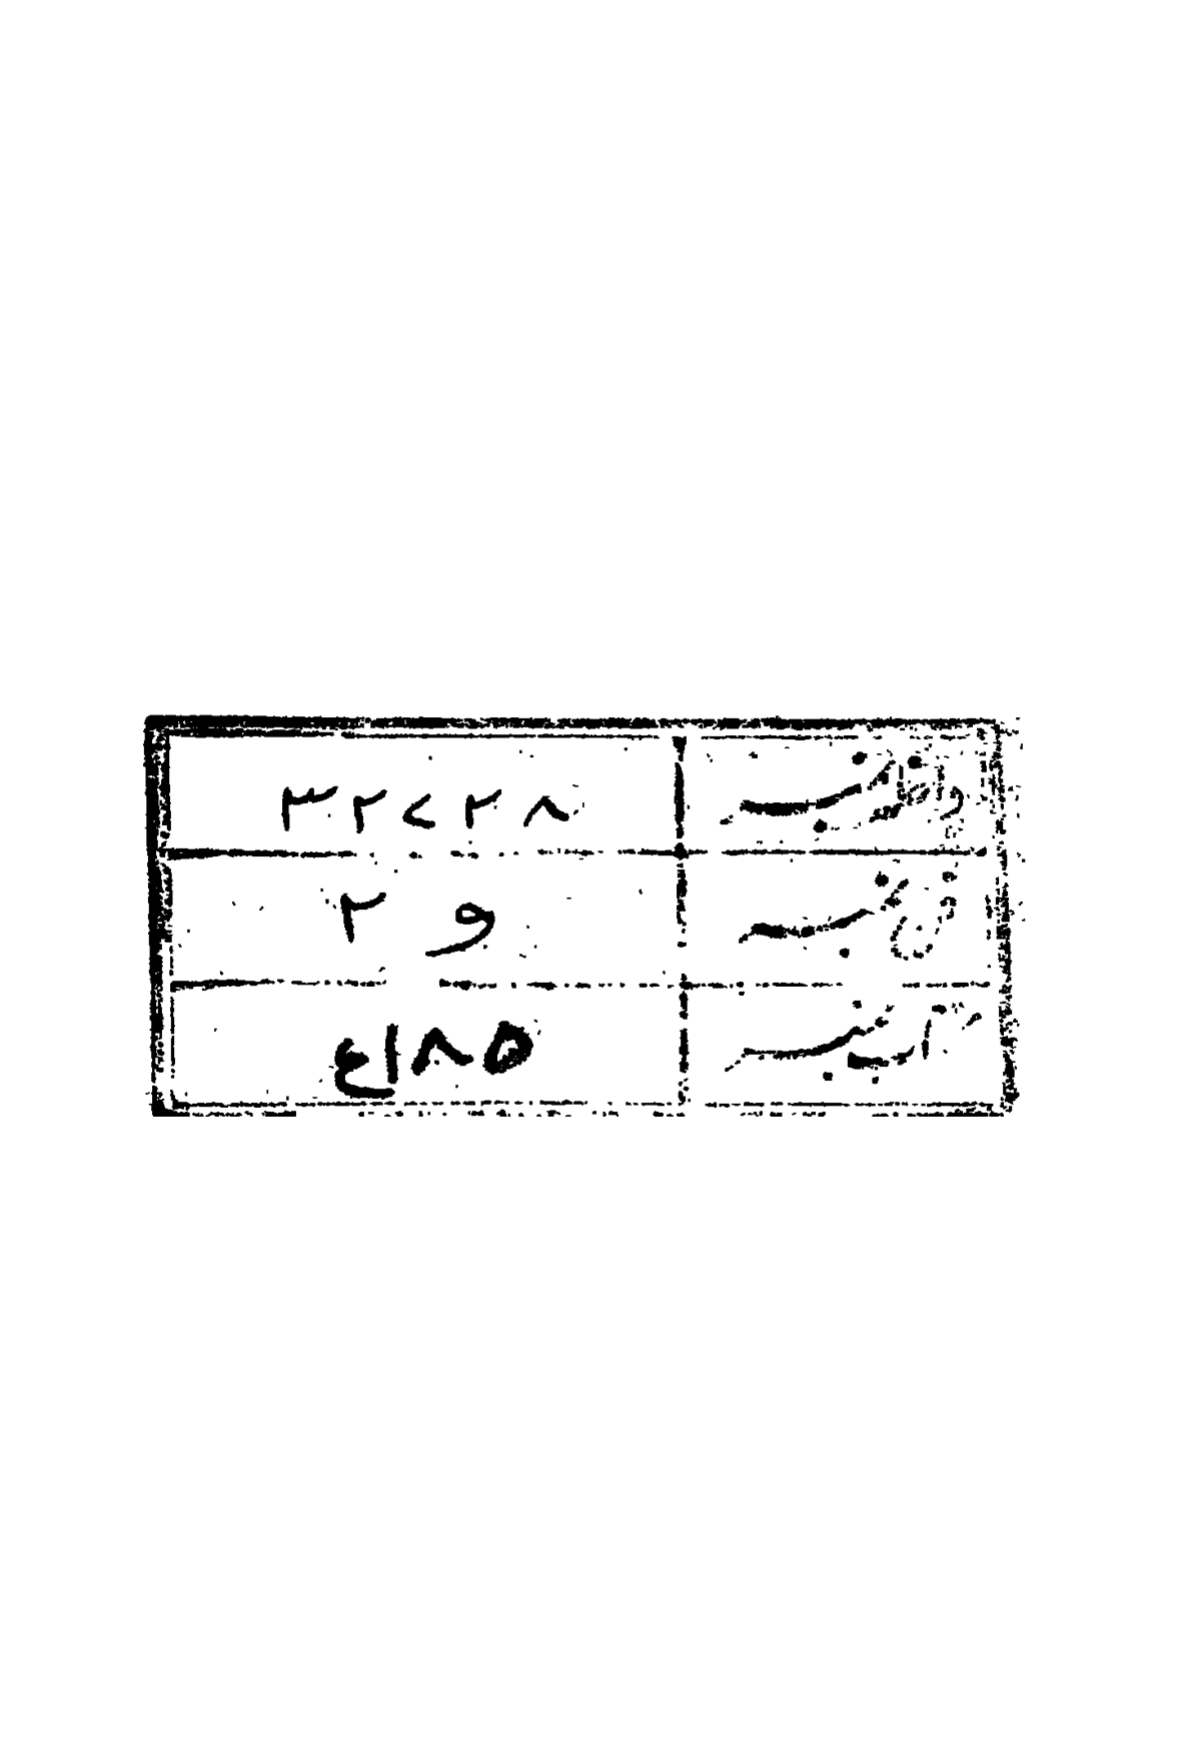 داخلہ نمبر ۳۲۷۲۸
فن نمبر و ۲
کتاب نمبر